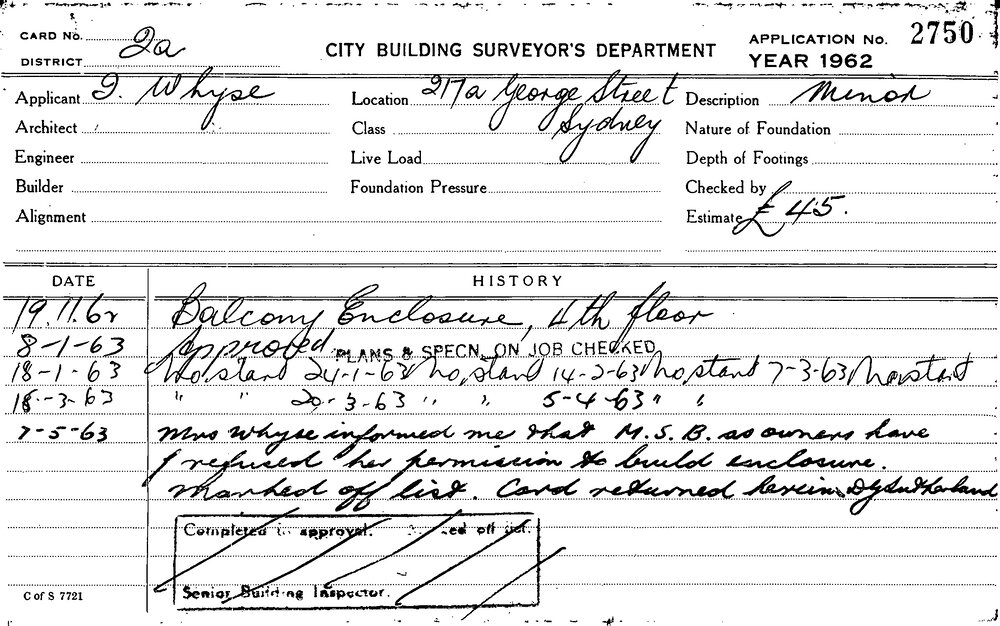 CARD No. 2a CITY BUILDING SURVEYOR'S DEPARTMENT APPLICATION No. 2750
DISTRICT YEAR 1962
Applicant I. Whyse Location 217a George Street Description Minor
Architect Class Sydney Nature of Foundation
Engineer Live Load Depth of Footings
Builder Foundation Pressure Checked by
Alignment Estimate £45.
DATE HISTORY
19.11.62 Balcony Enclosure, 4th floor
8-1-63 Approved PLANS & SPECN. ON JOB CHECKED
18-1-63 No start 24-1-63 No start 14-2-63 No start 7-3-63 No start
18-3-63 " " 20-3-63 " " 5-4-63 " "
7-5-63 Mrs Whyse informed me that M.S.B. as owners have
refused her permission to build enclosure.
Marked off list. Card returned herein D G Sutherland
Completed to approval. off list.
Senior Building Inspector.
C of S 7721